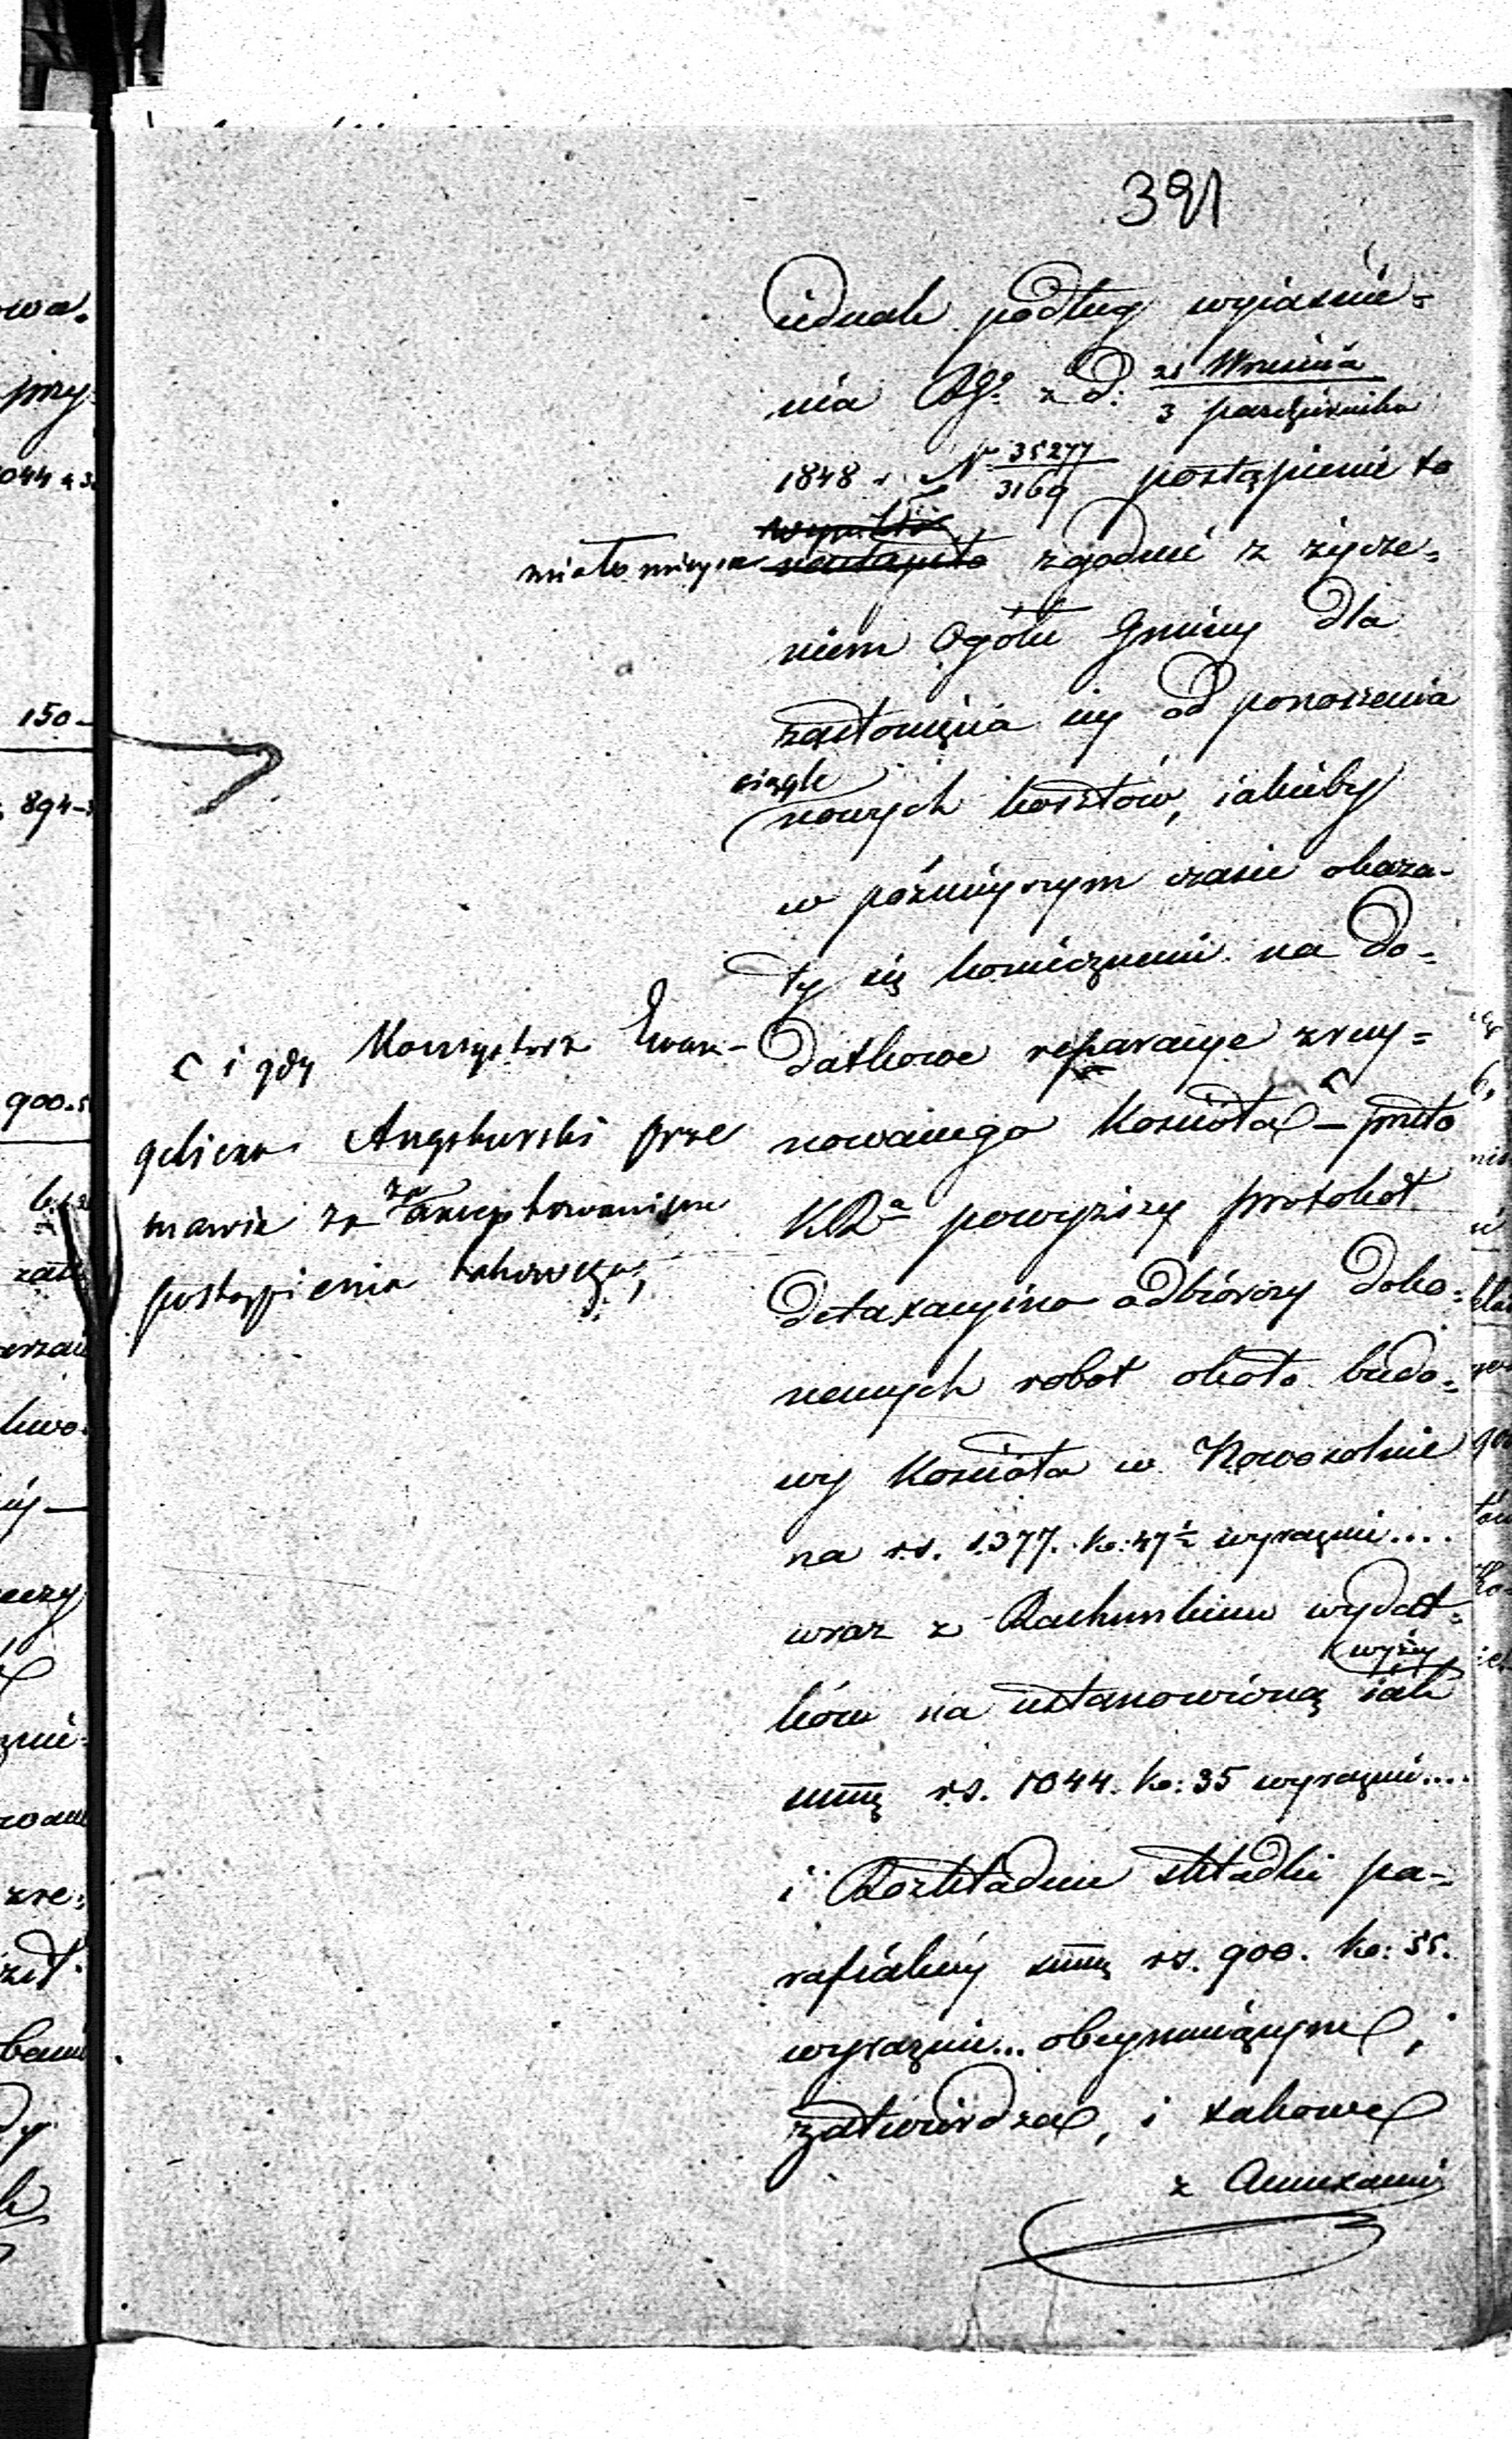 391
iednak podług wyiaśnie-
nia RGo z d: 21 Września
3 października
1848 r. N 35277
3169 postąpienie to
miało mieysce nastąpiło zgodnie z życze-
niem Ogółu Gminy dla
zasłonięcia iey od ponoszenia
ciągle
nowych kosztów, iakieby
w późnieyszym czasie okaza-
ły się koniecznemi na do-
datkowe reparacye zruy-
nowanego Kościoła – przeto
KRa powyższy protokół
detaxacyino odbiorczy doko-
nanych robót około budo-
wy Kościoła w Nowosolnie
na rs. 1377. ko: 47½ wyraźnie....
wraz z Rachunkiem wydat-
wyżey
ków na ustanowioną iak
summę rs. 1044. ko: 35 wyraźnie....
i Rozkładem składki pa-
rafialney summę rs. 900. ko: 55.
wyraźnie... obeymuiącym,
zatwierdza, i takowe
z Annexami
i gdy Konsystorz Ewan-
gelicko Augsburski prze
mawia za zaakceptowaniem
postąpienia takowego,
150
894
900